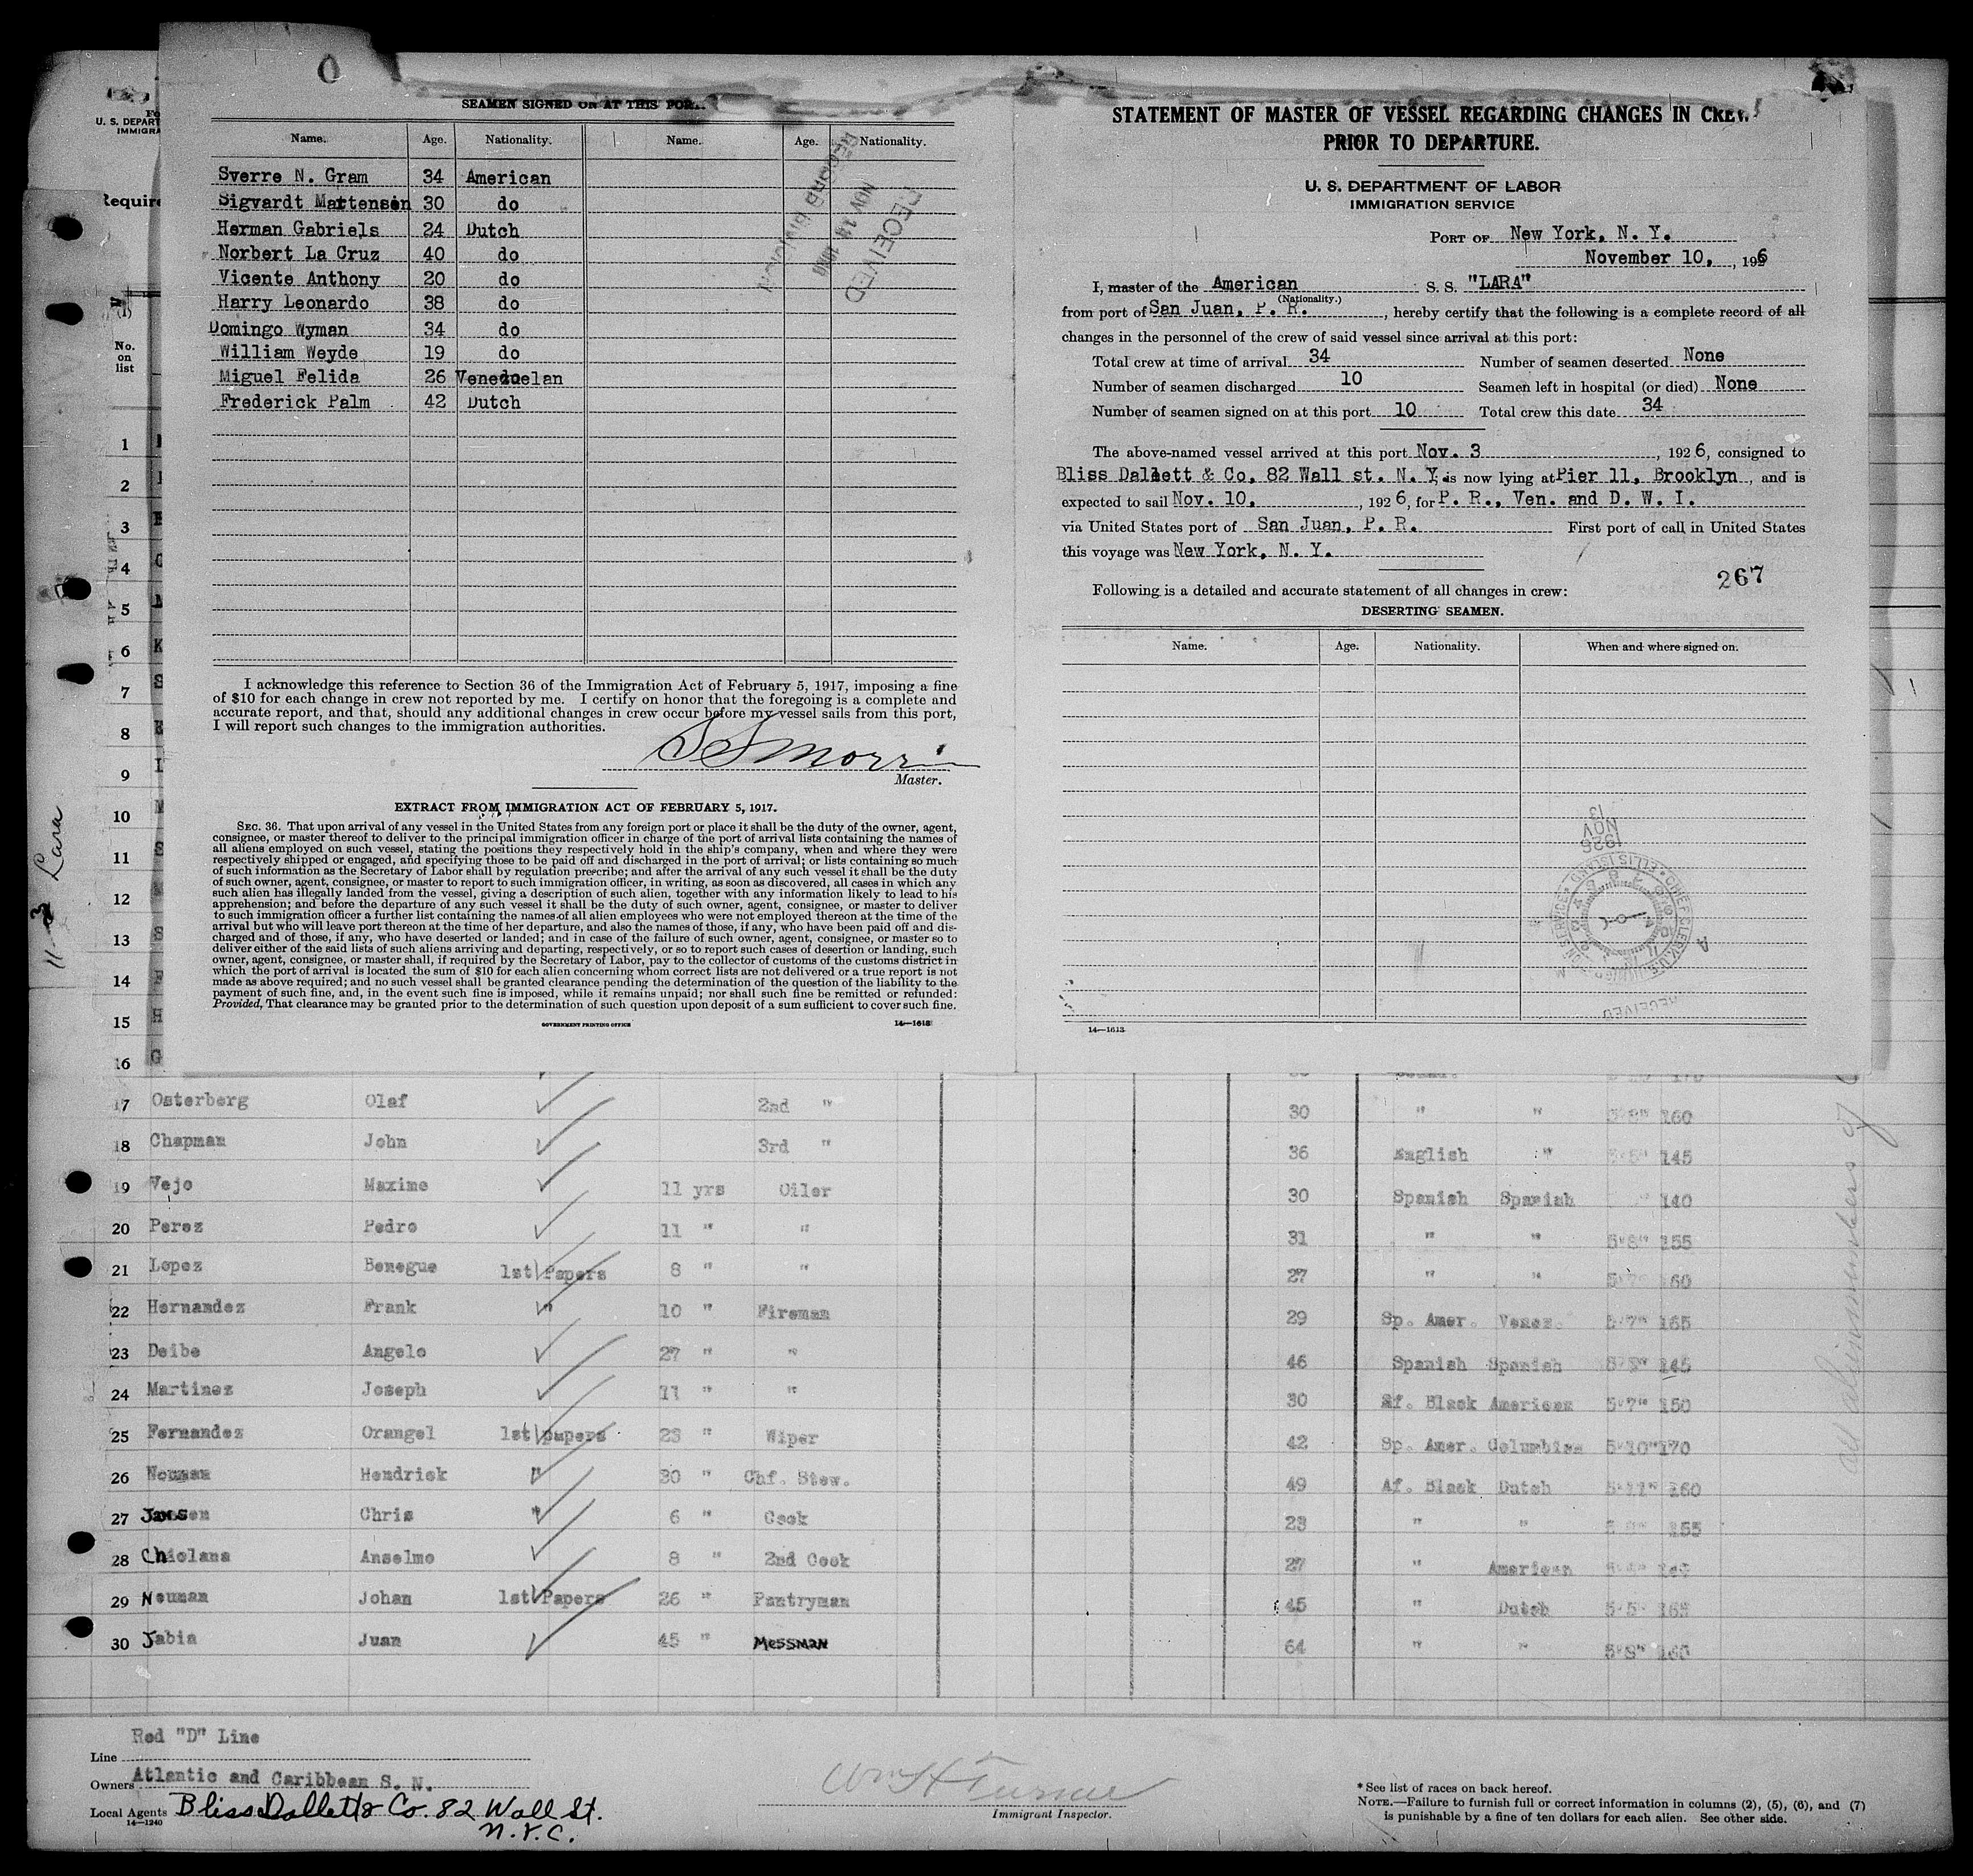 O
SEAMEN SIGNED ON AT THIS PORT.
Name. Age. Nationality. Name. Age. Nationality.
Sverre N. Gram 34 American
Sigvardt Martensen 30 do
Herman Gabriels 24 Dutch
Norbert La Cruz 40 do
Vicente Anthony 20 do
Harry Leonardo 38 do
Domingo Wyman 34 do
William Weyde 19 do
Miguel Felida 26 Venezuelan
Frederick Palm 42 Dutch
RECEIVED
NOV 14
RECORD DIVISION
I acknowledge this reference to Section 36 of the Immigration Act of February 5, 1917, imposing a fine
of $10 for each change in crew not reported by me. I certify on honor that the foregoing is a complete and
accurate report, and that, should any additional changes in crew occur before my vessel sails from this port,
I will report such changes to the immigration authorities.
Master.
EXTRACT FROM IMMIGRATION ACT OF FEBRUARY 5, 1917.
SEC. 36. That upon arrival of any vessel in the United States from any foreign port or place it shall be the duty of the owner, agent,
consignee, or master thereof to deliver to the principal immigration officer in charge of the port of arrival lists containing the names of
all aliens employed on such vessel, stating the positions they respectively hold in the ship's company, when and where they were
respectively shipped or engaged, and specifying those to be paid off and discharged in the port of arrival; or lists containing so much
of such information as the Secretary of Labor shall by regulation prescribe; and after the arrival of any such vessel it shall be the duty
of such owner, agent, consignee, or master to report to such immigration officer, in writing, as soon as discovered, all cases in which any
such alien has illegally landed from the vessel, giving a description of such alien, together with any information likely to lead to his
apprehension; and before the departure of any such vessel it shall be the duty of such owner, agent, consignee, or master to deliver
to such immigration officer a further list containing the names of all alien employees who were not employed thereon at the time of the
arrival but who will leave port thereon at the time of her departure, and also the names of those, if any, who have been paid off and dis-
charged and of those, if any, who have deserted or landed; and in case of the failure of such owner, agent, consignee, or master so to
deliver either of the said lists of such aliens arriving and departing, respectively, or so to report such cases of desertion or landing, such
owner, agent, consignee, or master shall, if required by the Secretary of Labor, pay to the collector of customs of the customs district in
which the port of arrival is located the sum of $10 for each alien concerning whom correct lists are not delivered or a true report is not
made as above required; and no such vessel shall be granted clearance pending the determination of the question of the liability to the
payment of such fine, and, in the event such fine is imposed, while it remains unpaid; nor shall such fine be remitted or refunded:
Provided, That clearance may be granted prior to the determination of such question upon deposit of a sum sufficient to cover such fine.
GOVERNMENT PRINTING OFFICE 14—1613
STATEMENT OF MASTER OF VESSEL REGARDING CHANGES IN CREW
PRIOR TO DEPARTURE.
U. S. DEPARTMENT OF LABOR
IMMIGRATION SERVICE
PORT OF New York, N. Y.
November 10, , 1926
I, master of the American S. S. "LARA"
(Nationality.)
from port of San Juan, P. R. , hereby certify that the following is a complete record of all
changes in the personnel of the crew of said vessel since arrival at this port:
Total crew at time of arrival 34 Number of seamen deserted None
Number of seamen discharged 10 Seamen left in hospital (or died) None
Number of seamen signed on at this port 10 Total crew this date 34
The above-named vessel arrived at this port Nov. 3 , 1926, consigned to
Bliss Dallett & Co, 82 Wall st. N. Y. is now lying at Pier 11, Brooklyn , and is
expected to sail Nov. 10, , 1926, for P. R., Ven. and D. W. I.
via United States port of San Juan, P. R. First port of call in United States
this voyage was New York, N. Y.
267
Following is a detailed and accurate statement of all changes in crew:
DESERTING SEAMEN.
Name. Age. Nationality. When and where signed on.
NOV 13
1926
RECEIVED
14—1613
U. S. DEPART
IMMIGRA
Require
No.
on
list
11-3 Lara
1
2
3
4
5
6
7
8
9
10
11
12
13
14
15
16
17 Osterberg Olaf 2nd " 30 " " 5'8" 160
18 Chapman John 3rd " 36 English " 145
19 Vejo Maxime 11 yrs Oiler 30 Spanish Spanish 140
20 Perez Pedro 11 " " 31 " " 5'8" 155
21 Lopez Benegue 1st Papers 8 " " 27 " "
22 Hernandez Frank " 10 " Fireman 29 Sp. Amer. Venez. 5'7" 165
23 Deibe Angelo 27 " " 46 Spanish Spanish 145
24 Martinez Joseph 11 " " 30 Af. Black American 5'7" 150
25 Fernandez Orangel 1st papers 23 " Wiper 42 Sp. Amer. Columbian 5'10" 170
26 Neuman Hendrick " 30 " Chf. Stew. 49 Af. Black Dutch 5'11" 160
27 Jansen Chris " 6 " Cook 23 " " 155
28 Chiolana Anselmo 8 " 2nd Cook 27 " American
29 Neuman Johan 1st Papers 26 " Pantryman 45 " Dutch 5'5" 165
30 Jabia Juan 45 " Messman 64 " " 5'8" 165
Line Red "D" Line
Owners Atlantic and Caribbean S. N.
Local Agents Bliss Dallett & Co. 82 Wall St.
N.Y.C.
14—1240
Wm H Turner
Immigrant Inspector.
* See list of races on back hereof.
NOTE.—Failure to furnish full or correct information in columns (2), (5), (6), and (7)
is punishable by a fine of ten dollars for each alien. See other side.